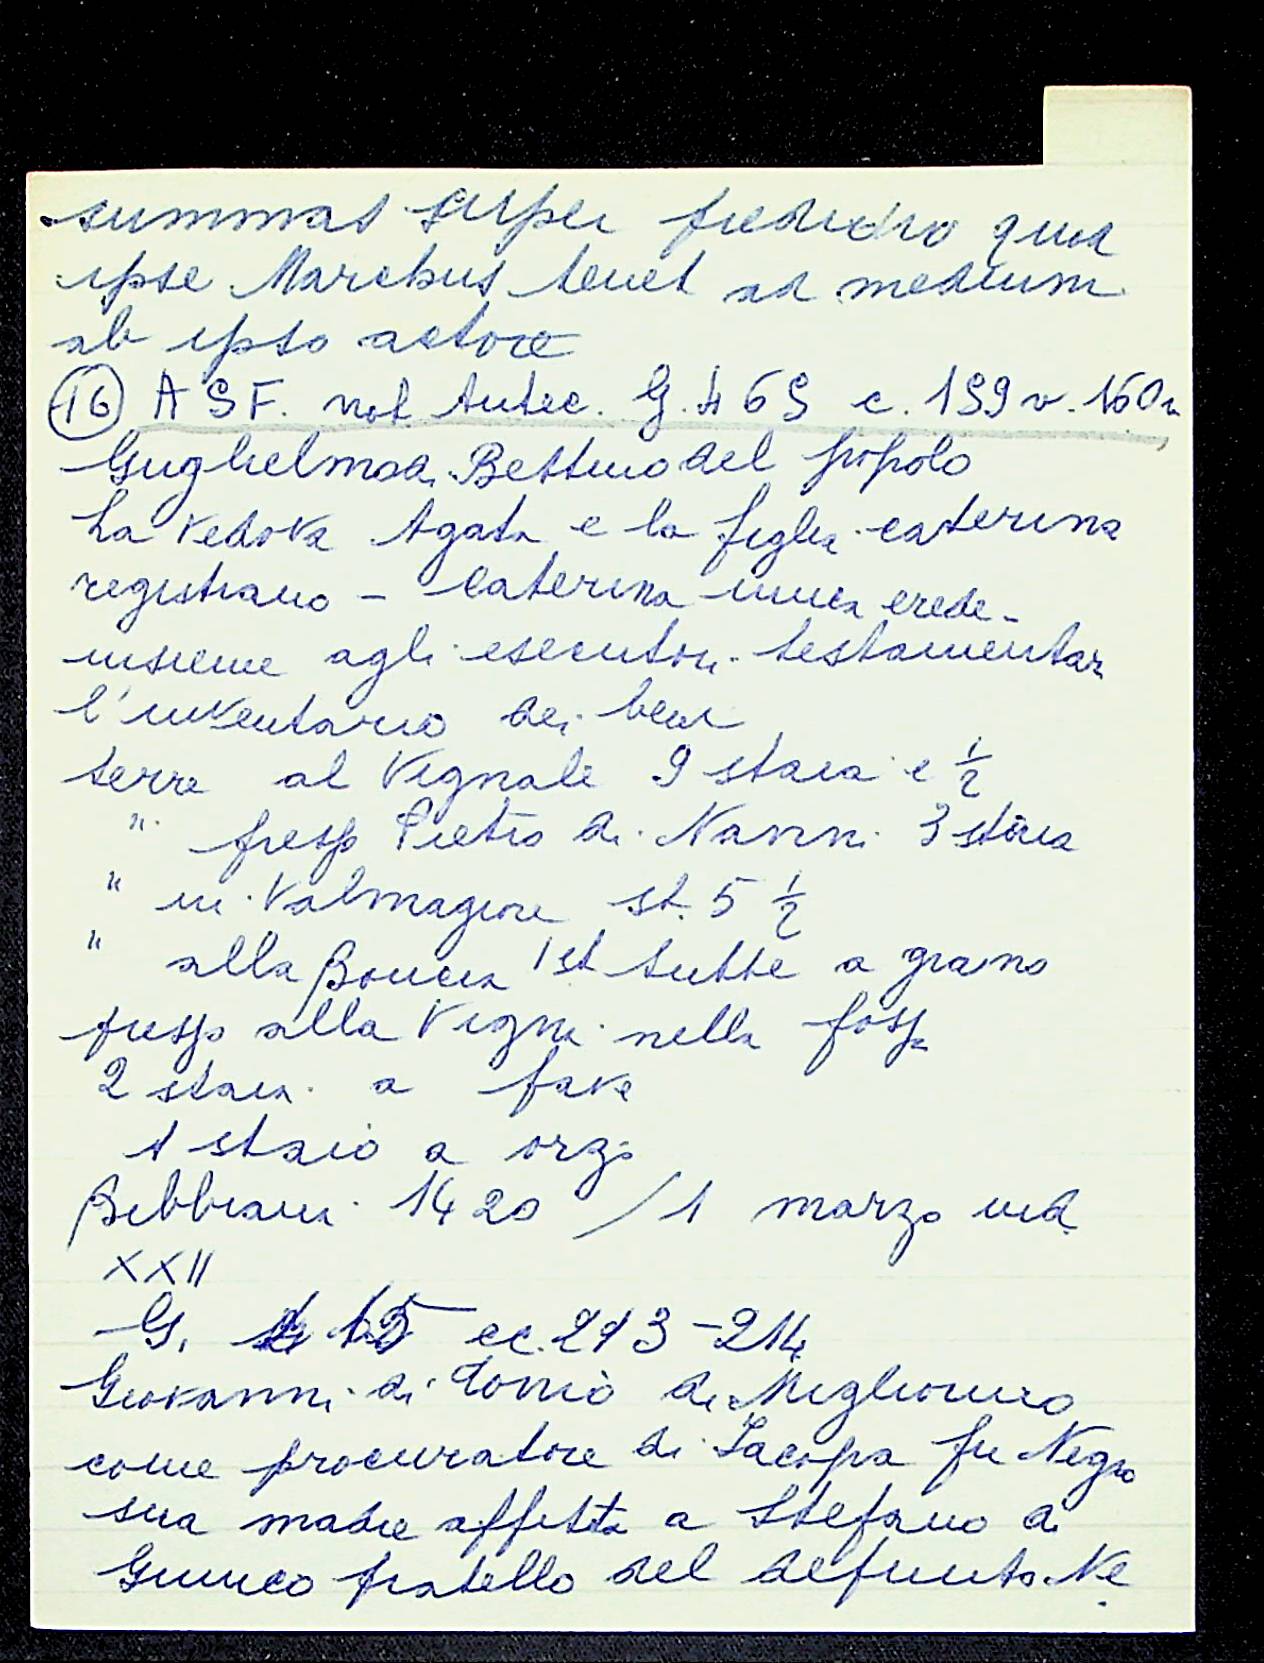 summas super predicto quod
ipse Marchus tenet ad medium
ab ipso actore
(16) ASF. not. Antec. G. 465 c. 159v. 160r
Guglielmo di Bettino del popolo
La vedova Agata e la figlia caterina
registrano - Caterina unica erede -
insieme agli esecutori testamentari
l'inventario dei beni
terre al Vignale 9 staia e 1/2
" presso Pietro di Nanni 3 staia
" in Valmagiore st. 5 1/2
" alla 1 st tutte a grano
presso alla Vigna nella fossa
2 staia a fave
1 staio a orzo
Bibbiana 1420 / 1 marzo ind.
XXII
G. cc. 213-214
Giovanni di Tomio di Migliorino
come procuratore di Jacopa fu Negro
sua madre affitta a Stefano di
Giunico fratello del defunto Ne